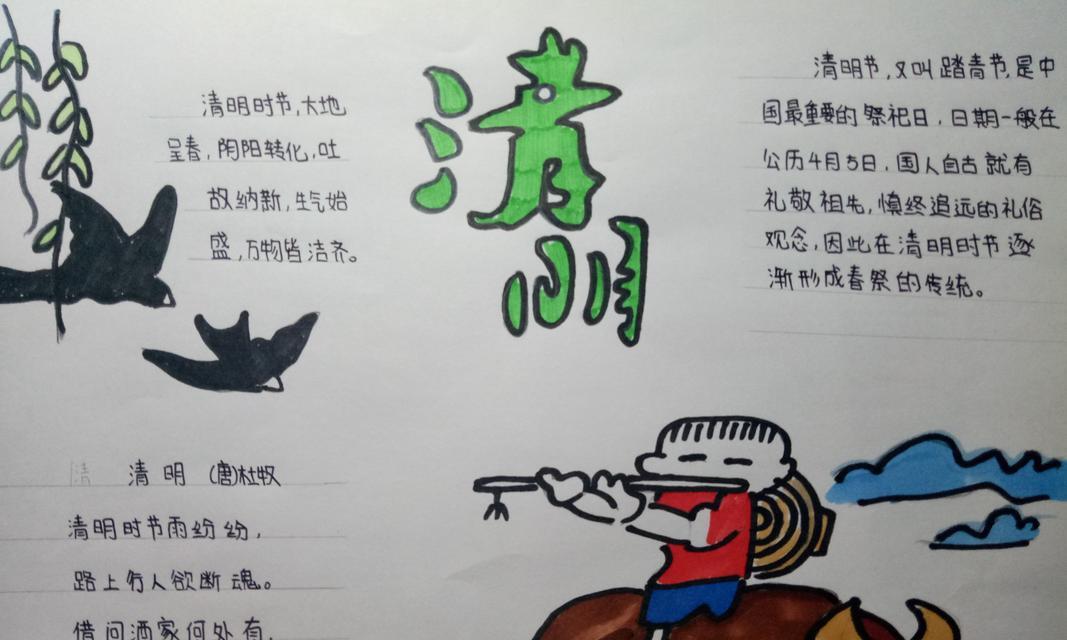 清明
清明时节,大地
呈春,阴阳转化,吐
故纳新,生气始
盛,万物皆洁齐。
清明节,又叫踏青节,是中
国最重要的祭祀日,日期一般在
公历4月5日,国人自古就有
礼敬祖先,慎终追远的礼俗
观念,因此在清明时节逐
渐形成春祭的传统。
清明 (唐)杜牧
清明时节雨纷纷,
路上行人欲断魂。
借问酒家何处有,